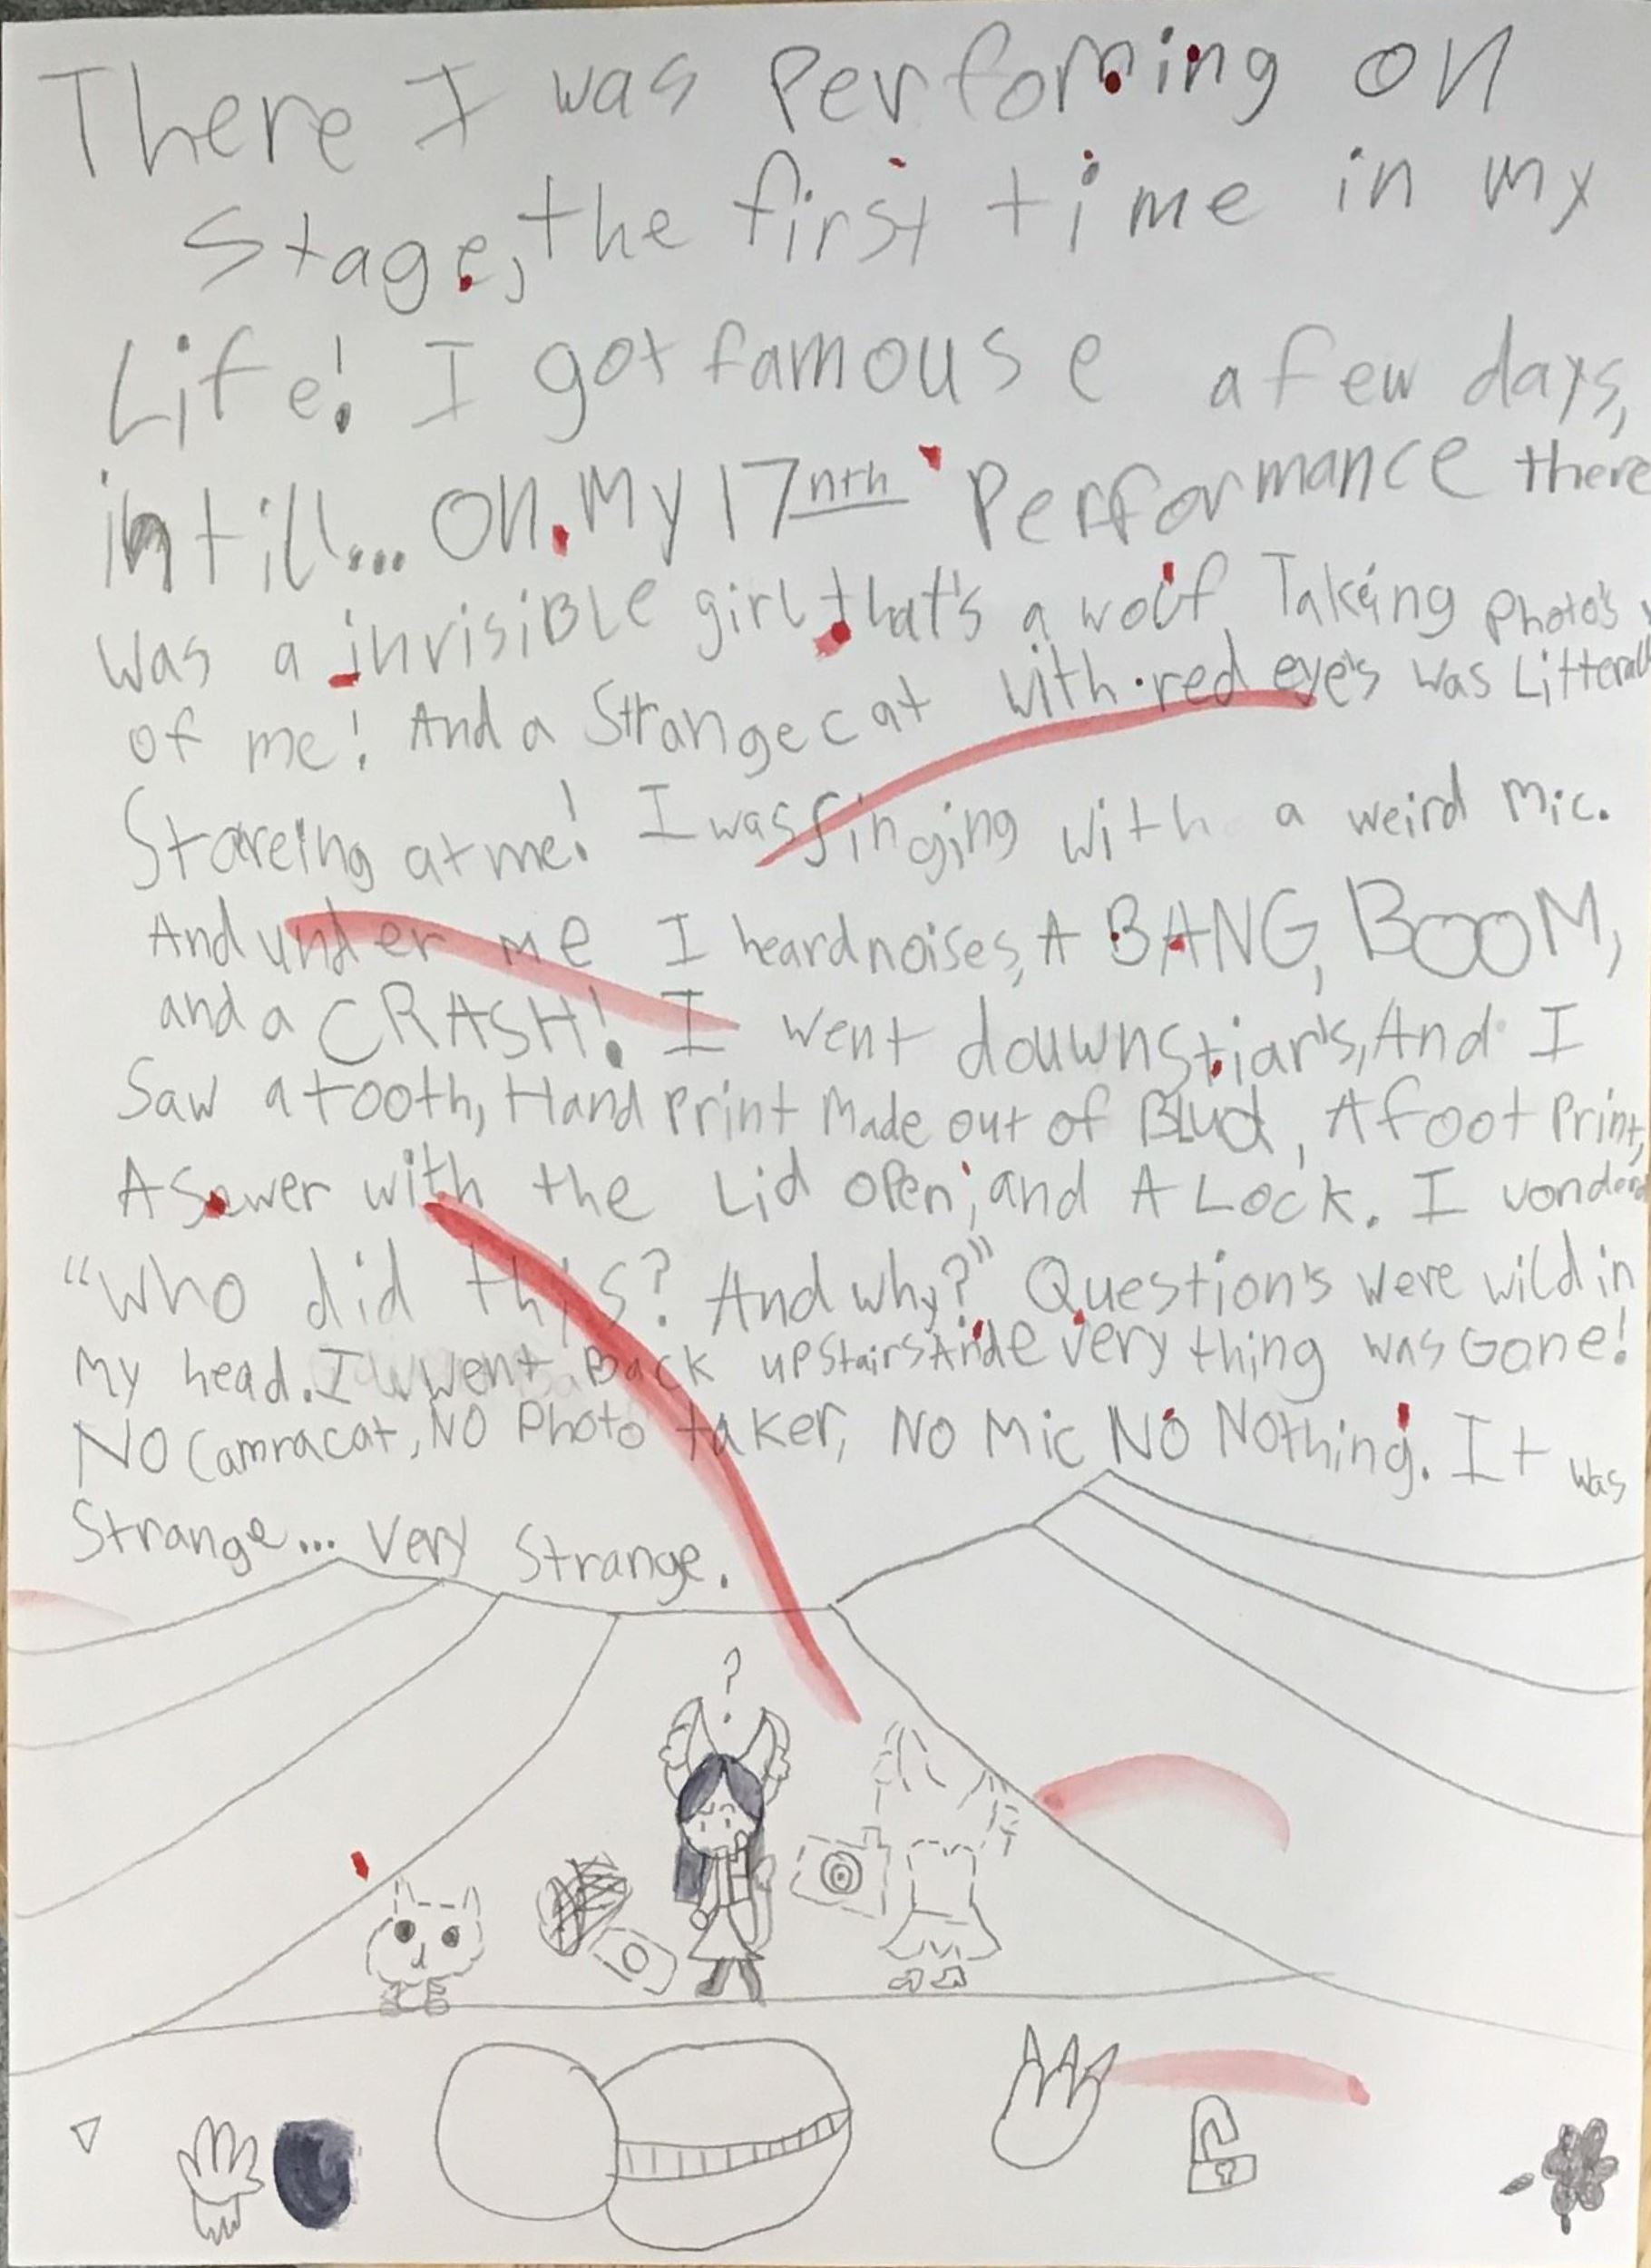 There I was Performing on
Stage, the first time in my
Life! I got famouse a few days,
intill... On my 17nth Performance there
was a invrisible girl that's a wolf Takeing photo's
of me! And a Strange cat with red eye's was Litterall
Stareing at me! I was singing with a weird mic.
And under me I heard noises, A BANG, BOOM,
and a CRASH! I went douwnstiar's, And I
Saw a tooth, Hand Print Made out of Blud, A foot Print,
A Sewer with the Lid open, and A Lock. I vondered
"Who did this? And why?" Question's were wild in
My head. I went Back upstairs And every thing was Gone!
No Camracat, NO Photo taker, No Mic No Nothing. It was
Strange... Very Strange.
?